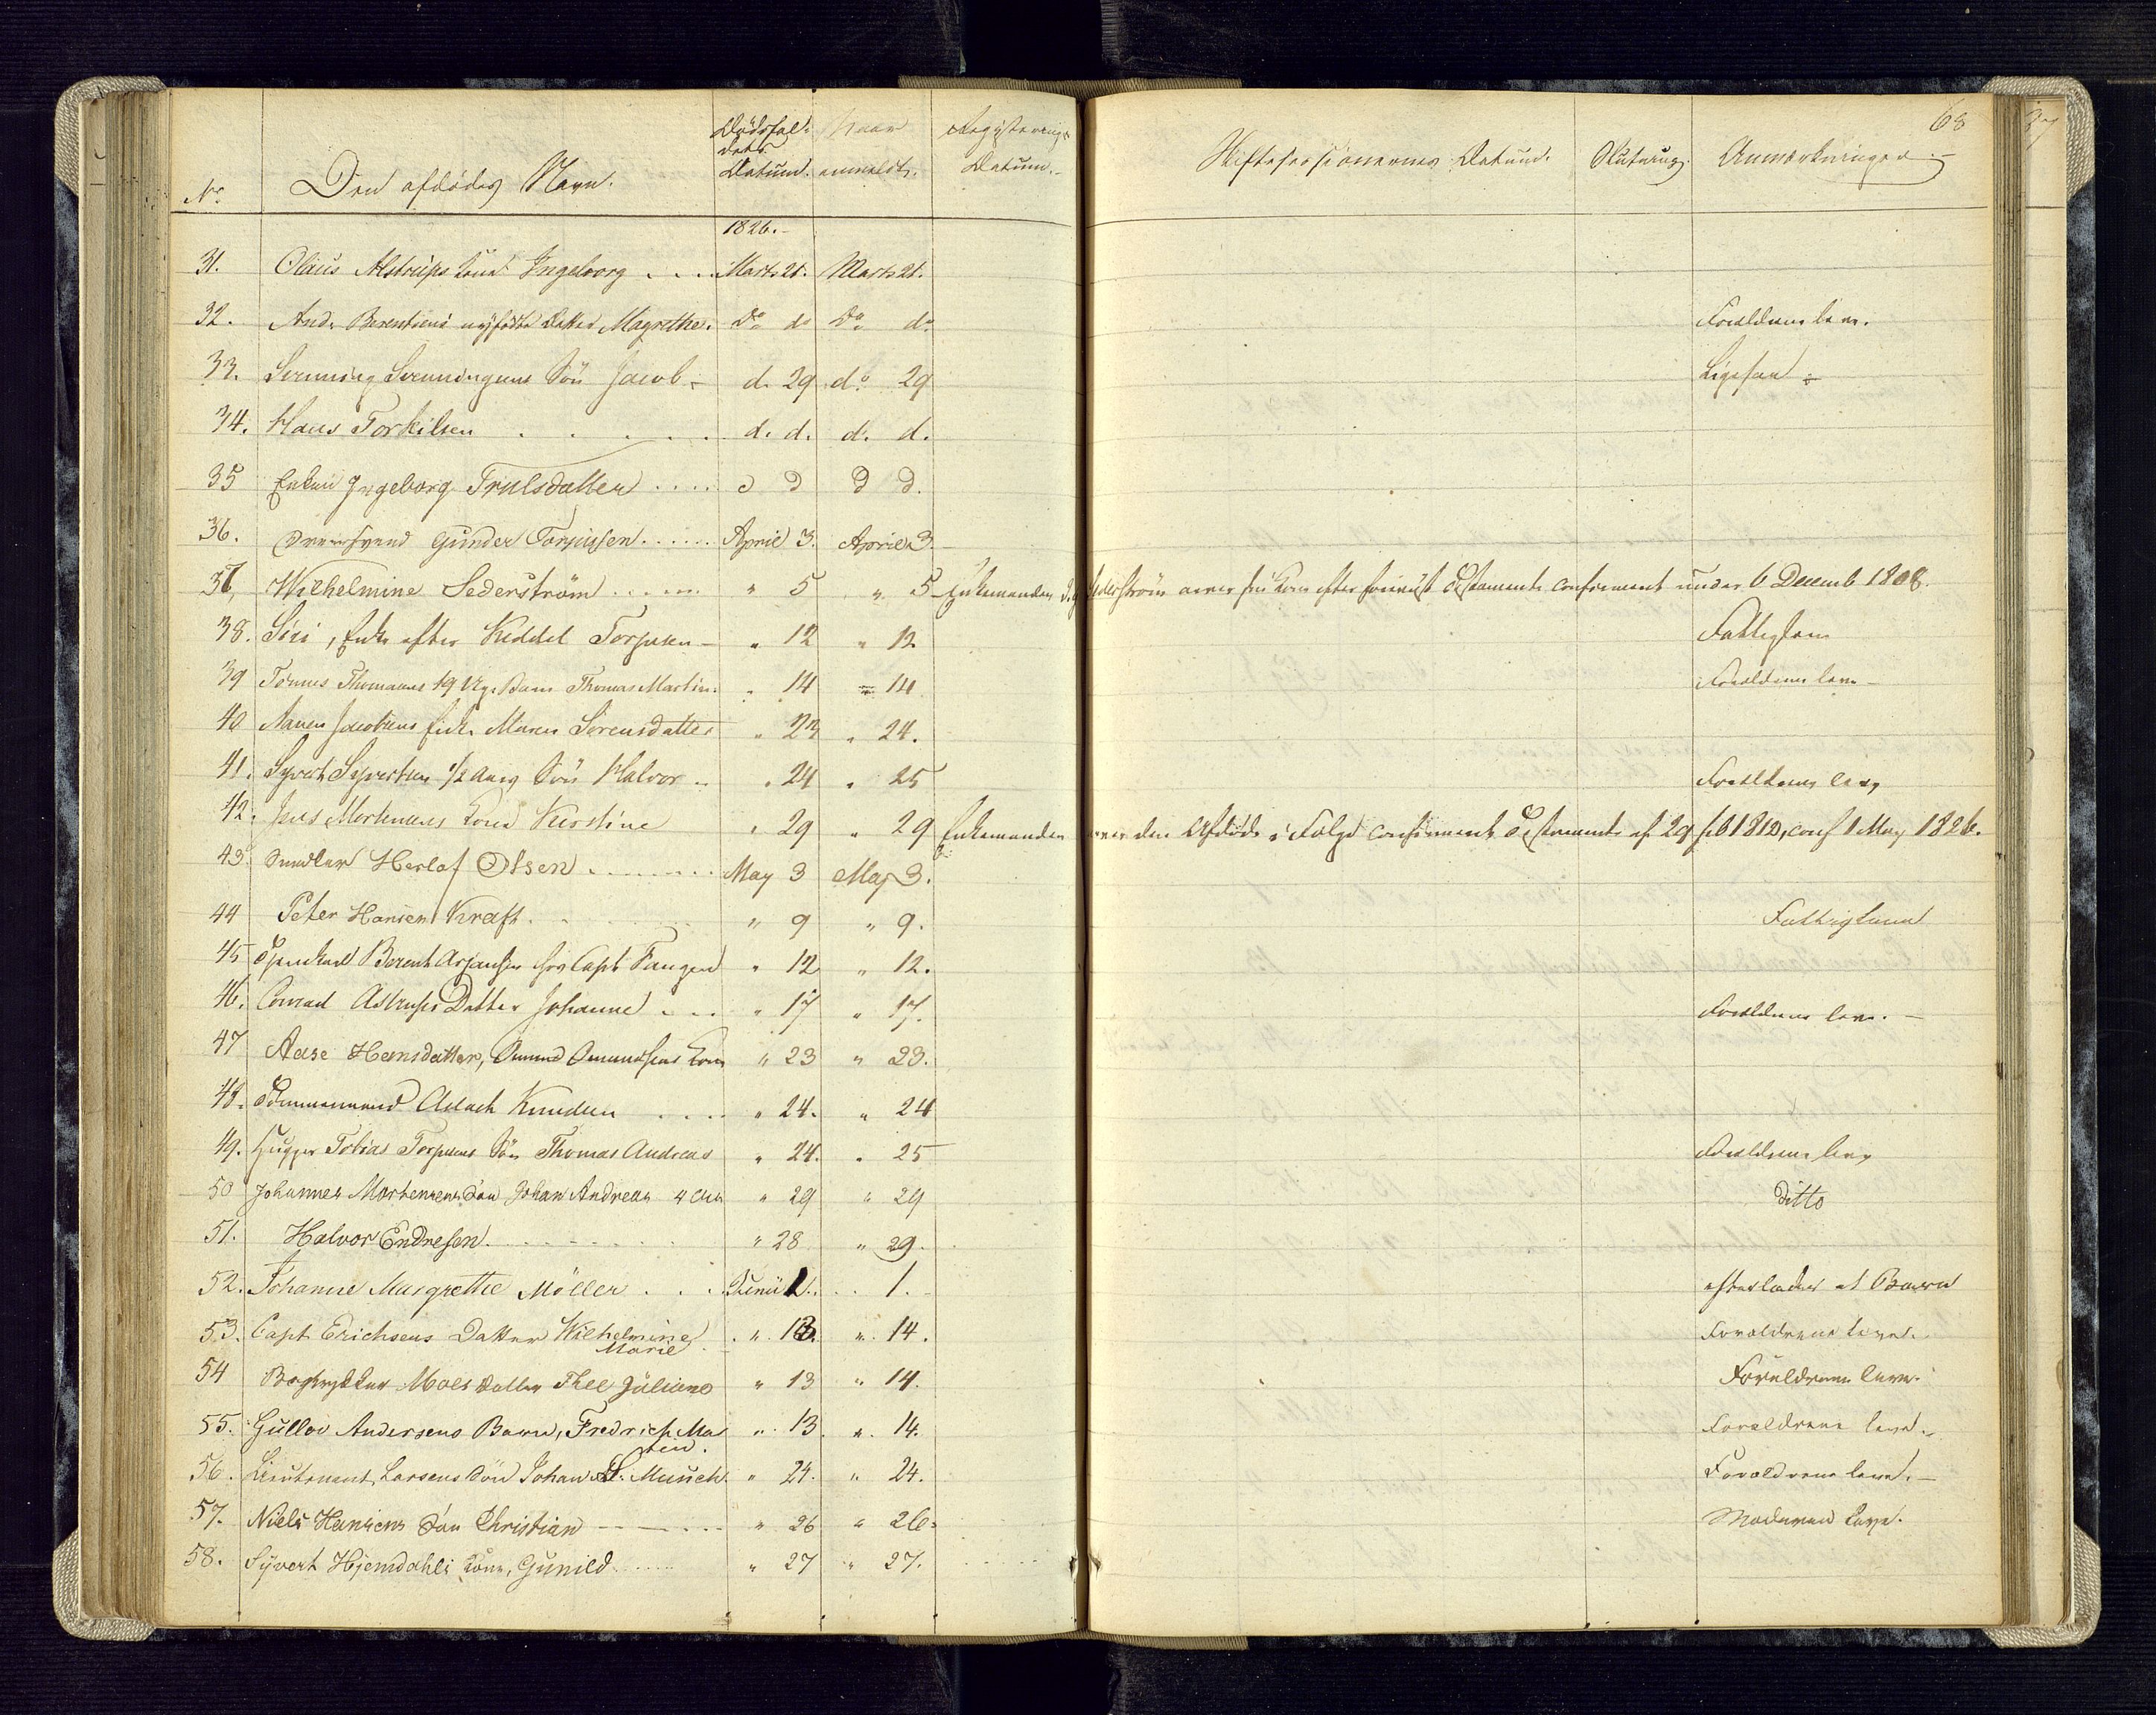 68
No Den afdødes Navn. Dødsfaldets Datum. Naar anmeldt. Registerings Datum. Skiftesessionernes Datum. Slutning. Anmærkninger.
1826.
31. Olaus Alstrups Kone Ingeborg .... Marts 21. Marts 21.
32. And. Berentsens nyfødte Datter Magrethe. Do do Do do Forældrene leve.
33. Svenning Svenningsens Søn Jacob d. 29 do 29 Ligesaa
34. Hans Torkilsen d. d. d. d.
35 Enken Ingeborg Trulsdatter .... d d d d.
36. Gunder Torjusen ...... April 3. April 3.
37, Wilhelmine Sederström ...... " 5 " 5 Enkemanden Sederstrøm arver sin Kone efter foreviist Testamente confirmeret under 6 Decemb 1808.
38. Siri, Enke efter Keddel Torjusen " 12 " 12 Fattiglem
39 Tønnes Thomasens 19 Ugr. Barn Thomas Martin. " 14 " 14 Forældrene leve
40 Aanen Jacobsens Enke Maren Sørensdatter " 23 " 24.
41. Syvert Syvertsens 1/2 Aars Søn Halvor " 24 " 25 Forældrene leve
42. Jens Mortensens Kone Kirstine " 29 " 29 Enkemanden arver den Afdøde i Følge confirmeret Testamente af 29 feb 1812, conf 1 May 1826.
43. Snedker Herlof Olsen ........ May 3 May 3.
44 Peter Hansen Kraft. " 9 " 9. Fattiglem
45 Berent Asjansen hos Capt Fangen " 12 " 12.
46. Conrad Astrups Datter Johanne ... " 17 " 17. Forældrene leve.
47 Aase Hansdatter, Omund Omundsens Kone " 23 " 23.
48. Tømmermand Aslach Knudsen .... " 24. " 24
49. Tobias Torjusens Søn Thomas Andreas " 24. " 25 Forældrene leve
50 Johannes Mortensens Søn Johan Andreas 4 Aar " 29 " 29 Ditto
51. Halvor Endresen. " 28 " 29.
52. Johanne Margrethe Möller ... Junii 1. 1. efterlader et Barn
53. Capt. Erichsens Datter Wilhelmine
Marie . " 13. " 14. Forældrene leve.
54 Bogtrykker Moes Datter Thee Juliane " 13 " 14. Forældrene leve.
55. Gullov Andersens Barn, Fredrich Ma
tin. " 13. " 14. Forældrene leve.
56. Lieutenant Larsens Søn Johan S. Munch " 24. " 24. Forældrene leve.
57. Niels Hansens Søn Christian " 26 " 26. Moderen leve.
58. Syvert Hjemdahls Kone, Gunild " 27 " 27.